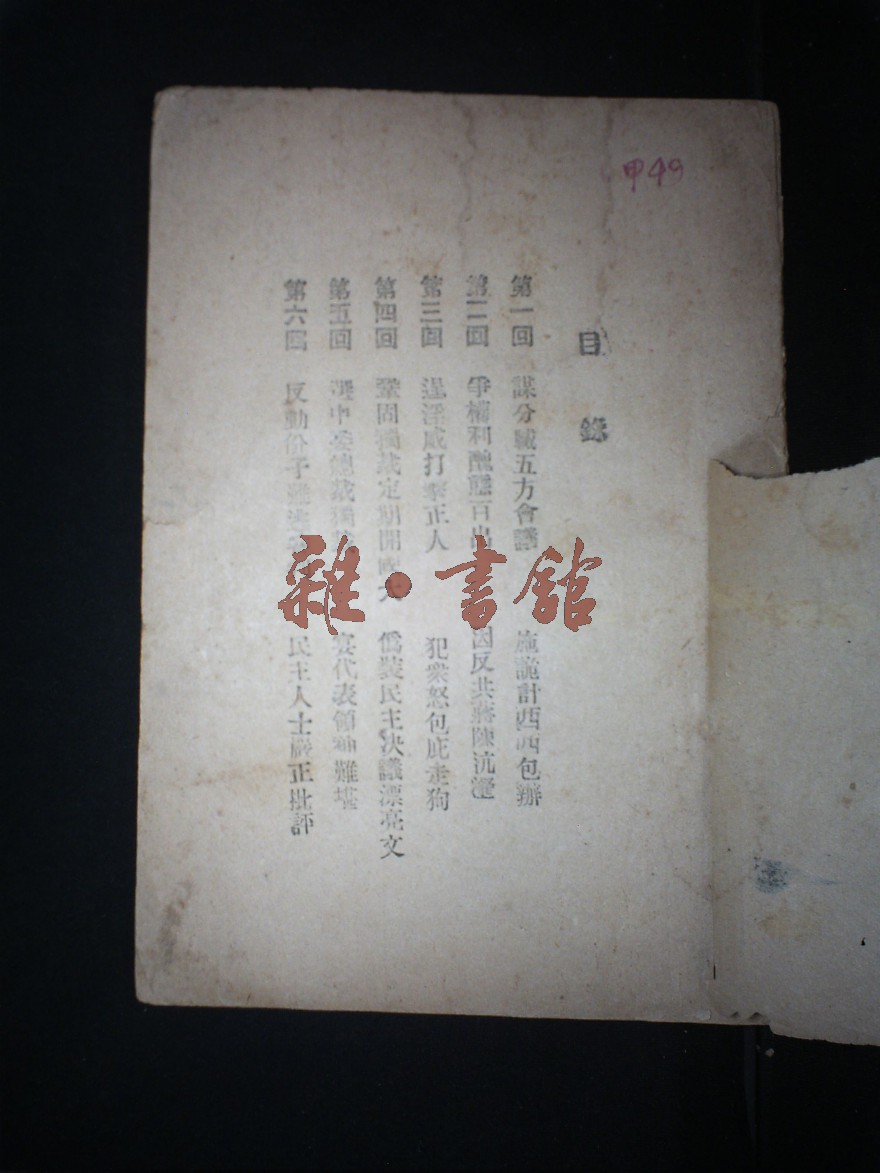 甲49
目錄
第一回 謀分贓五方會議 施詭計西西包辦
第二回 爭權利醜態百出 因反共蔣陳沆瀣
第三回 逞淫威打擊正人 犯衆怒包庇走狗
第四回 鞏固獨裁定期開 偽裝民主決議漂亮文
第五回 選中委總裁獨 宴代表領袖難堪
第六回 反動份子 民主人士嚴正批評
雜·書館